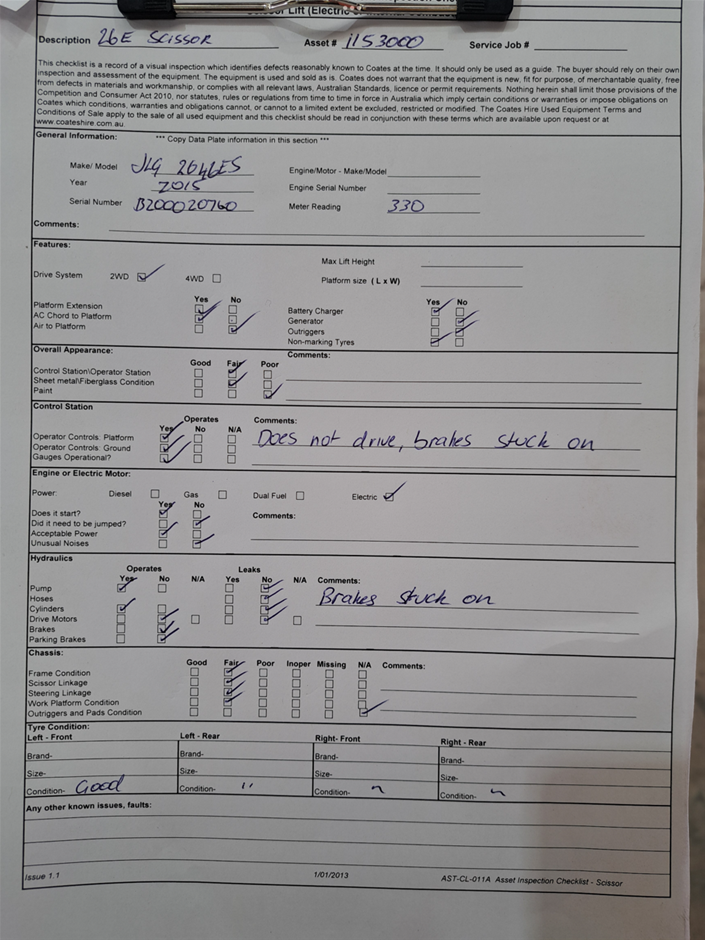 Lift (Electric
Description 26E SCISSOR Asset # 1153000 Service Job #
This checklist is a record of a visual inspection which identifies defects reasonably known to Coates at the time. It should only be used as a guide. The buyer should rely on their own
inspection and assessment of the equipment. The equipment is used and sold as is. Coates does not warrant that the equipment is new, fit for purpose, of merchantable quality, free
from defects in materials and workmanship, or complies with all relevant laws, Australian Standards, licence or permit requirements. Nothing herein shall limit those provisions of the
Competition and Consumer Act 2010, nor statutes, rules or regulations from time to time in force in Australia which imply certain conditions or warranties or impose obligations on
Coates which conditions, warranties and obligations cannot, or cannot to a limited extent be excluded, restricted or modified. The Coates Hire Used Equipment Terms and
Conditions of Sale apply to the sale of all used equipment and this checklist should be read in conjunction with these terms which are available upon request or at
www.coateshire.com.au
General Information: *** Copy Data Plate information in this section ***
Make/ Model JLG 2646ES Engine/Motor - Make/Model
Year 2015 Engine Serial Number
Serial Number B200020760 Meter Reading 330
Comments:
Features:
Max Lift Height
Drive System 2WD 4WD Platform size ( L x W)
Yes No Yes No
Platform Extension Battery Charger
AC Chord to Platform Generator
Air to Platform Outriggers
Non-marking Tyres
Overall Appearance: Comments:
Good Fair Poor
Control Station\Operator Station
Sheet metal\Fiberglass Condition
Paint
Control Station
Operates
Yes No N/A Comments:
Operator Controls: Platform Does not drive, brakes stuck on
Operator Controls: Ground
Gauges Operational?
Engine or Electric Motor:
Power: Diesel Gas Dual Fuel Electric
Yes No
Does it start? Comments:
Did it need to be jumped?
Acceptable Power
Unusual Noises
Hydraulics
Operates Leaks
Yes No N/A Yes No N/A Comments:
Pump
Hoses Brakes stuck on
Cylinders
Drive Motors
Brakes
Parking Brakes
Chassis:
Good Fair Poor Inoper Missing N/A Comments:
Frame Condition
Scissor Linkage
Steering Linkage
Work Platform Condition
Outriggers and Pads Condition
Tyre Condition:
Left - Front Left - Rear Right- Front Right - Rear
Brand- Brand- Brand- Brand-
Size- Size- Size- Size-
Condition- Good Condition- " Condition- " Condition- "
Any other known issues, faults:
Issue 1.1 1/01/2013 AST-CL-011A Asset Inspection Checklist - Scissor